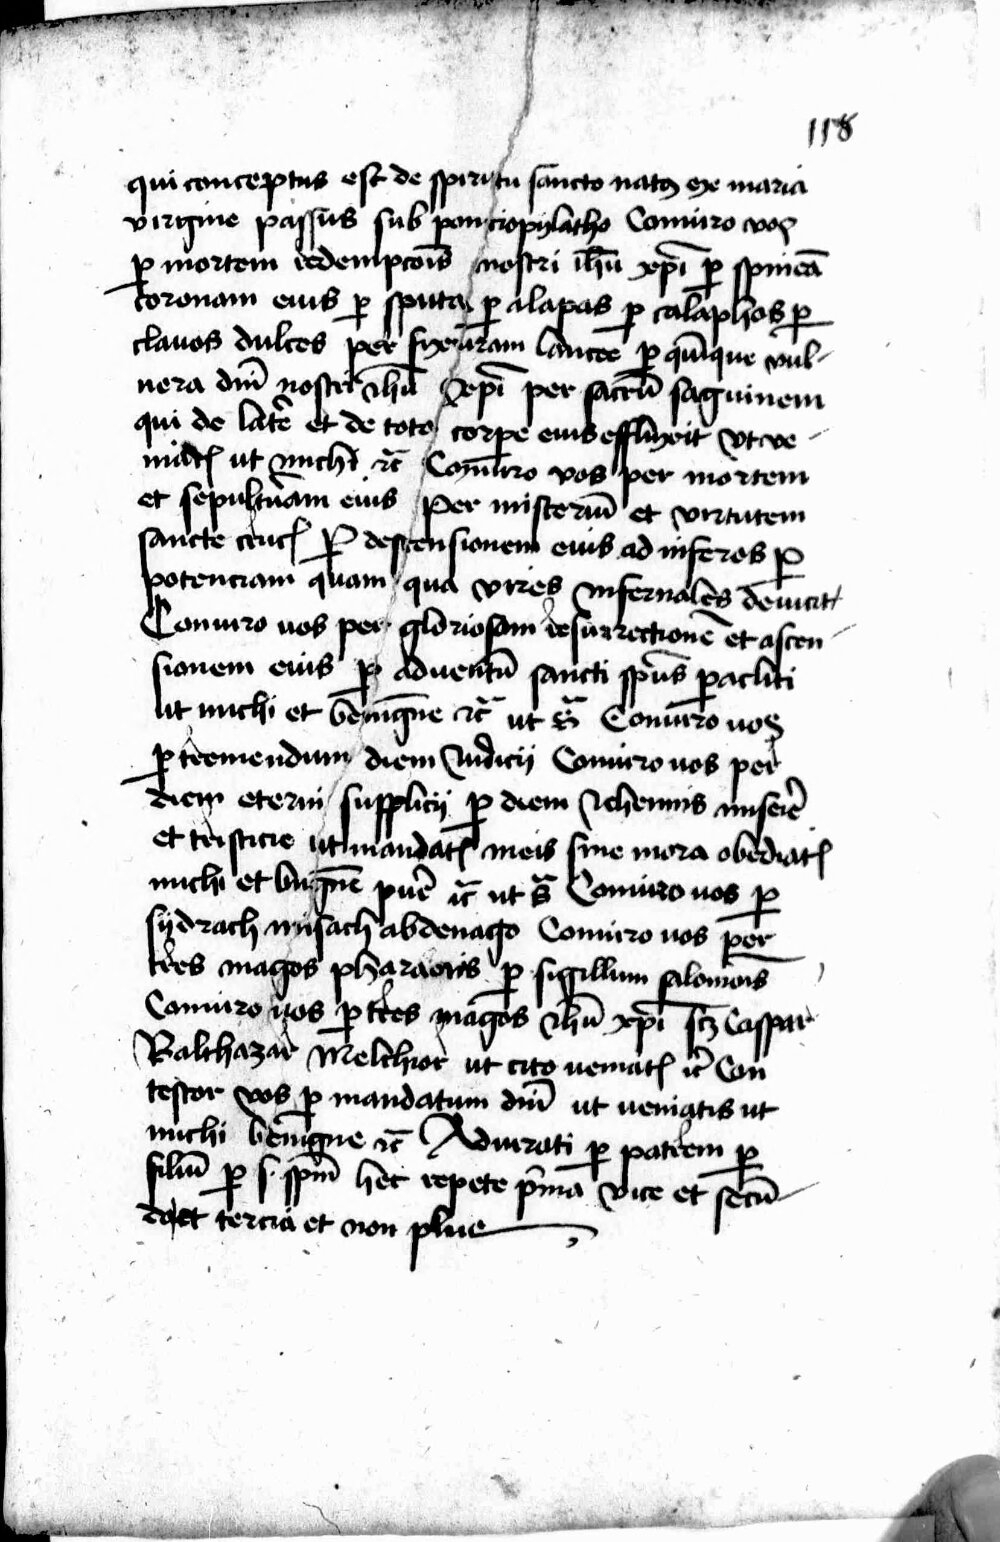 118
qui conceptus est de spiritu sancto natꝯ ex maria
virgine passus sub ponciopylatho Coniuro vos
ꝑ mortem redempcōis nostri ihū xp̄i ꝑ spineā
coronam eius ꝑ sputa ꝑ alapas ꝑ calaphos ꝑ
clavos dulces per fixuram lancee ꝑ quīque vul-
nera dn̄i nostri ihū xp̄i per sacrū saguinem
qui de late᷑ et de toto corpe eius effluxit vt ve-
niatꝭ ut michi ⁊c̄ Coniuro vos per mortem
et sepulturam eius Per misteriū et virtutem
sancte crucꝭ ꝑ descensionem eius ad inferos ꝑ
potenciam quam qua vires infernales deuicit
Coniuro uos per gloriosam resurrectionē et ascen-
sionem eius ꝑ aduentū sancti sp̄us ꝑacliti
ut michi et benigne ⁊c̄ ut s̄ Coniuro uos
ꝑ tremendum diem Iudicii Coniuro uos per
diem eterni supplicij ꝑ diem Iehennis misere᷑
et tristicie ut mandatꝭ meis sine mora obediatꝭ
michi et bnīgne pue᷑ ⁊c̄ ut s̄ Coniuro uos ꝑ
sydrach misach abdenago Coniuro uos per
tres magos pharaonis ꝑ sigillum salomōis
Coniuro uos ꝑ tres magos ihū xp̄i scꝫ Caspar
Balthazar Melchior ut cito ueniatꝭ ⁊c̄ Con
testor vos ꝑ mandatum dn̄i ut ueniatis ut
michi benigne ⁊c̄ Adiurati ꝑ patrem ꝑ
filiū ꝑ s. sp̄m hec repete p̄ma vice et secū-
da et tercia et non plus